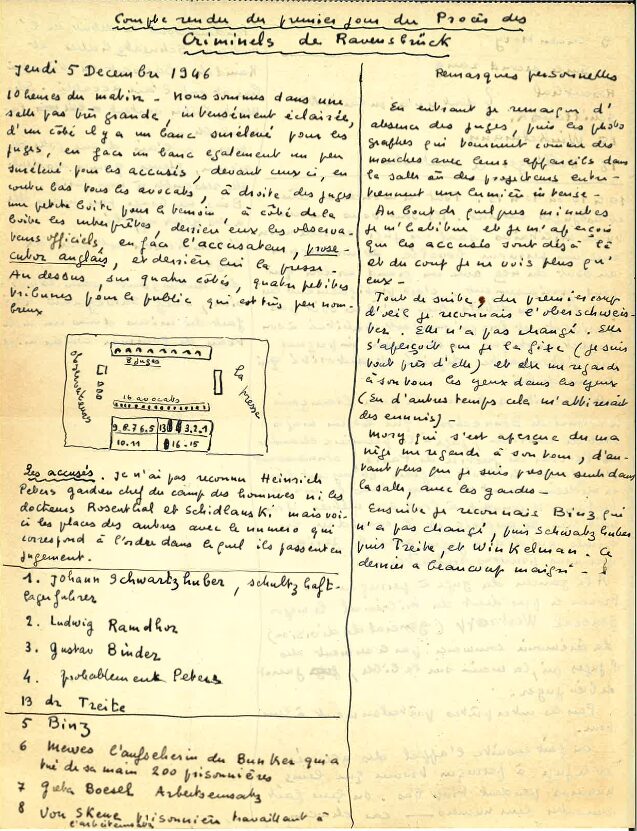 Compte rendu du premier jour du Procès des
Criminels de Ravensbrück
Jeudi 5 Decembre 1946
10 heures du matin - Nous sommes dans une
salle pas très grande, intensément éclairée,
d'un côté il y a un banc surélevé pour les
juges, en face un banc egalement un peu
surélevé pour les accusés, devant ceux ci, en
contre bas tous les avocats, à droite des juges
une petite boite pour le temoin, à côté de la
boite les interprètes, derrière eux les observa-
teurs officiels, en face l'accusateur, prose-
cutor anglais, et derrière lui la presse -
Au dessus, sur quatre côtés, quatre petites
tribunes pour le public qui est très peu nom-
breux
observateurs
8 juges
la presse
16 avocats
9.8.7.6.5 13 3.2.1
10.11 16-15
Les accusés. Je n'ai pas reconnu Heinrich
Peters gardien chef du camp des hommes ni les
docteurs Rosenthal et Schidlauski mais voi-
ci les places des autres avec le numero qui
correspond à l'ordre dans lequel ils passent en
jugement.
1. Johann Schwartzhuber, schultzhaft-
lagerfuhrer
2. Ludwig Ramdhor
3. Gustav Binder
4. probablement Peters
13 dr Treite
5 Binz
6 Mewes l'aufseherin du Bunker qui a
tué de sa main 200 prisonnières
7 greta Boesel Arbeitseinsatz
8 Von Skene prisonnière travaillant à
l'arbeitseinsatz
Remarques personnelles
En entrant je remarque l'
absence des juges, puis les photo
graphes qui tournent comme des
mouches avec leurs appareils dans
la salle où des projecteurs entre-
tiennent une lumière intense -
Au bout de quelques minutes
je m'habitue et je m'aperçois
que les accusés sont déjà là
et du coup je ne vois plus qu'
eux -
Tout de suite, du premier coup
d'oeil je reconnais l'oberschwes-
ter. Elle n'a pas changé. Elle
s'aperçoit que je la fixe (je suis
tout près d'elle) et elle me regarde
à son tour les yeux dans les yeux
(En d'autres temps cela m'attirerait
des ennuis) -
Mory qui s'est aperçue du ma
nège me regarde à son tour, d'au-
tant plus que je suis presque seule dans
la salle, avec les gardes -
Ensuite je reconnais Binz qui
n'a pas changé, puis Schwatzhuber
puis Treite, et Winkelman. Ce
dernier a beaucoup maigri -